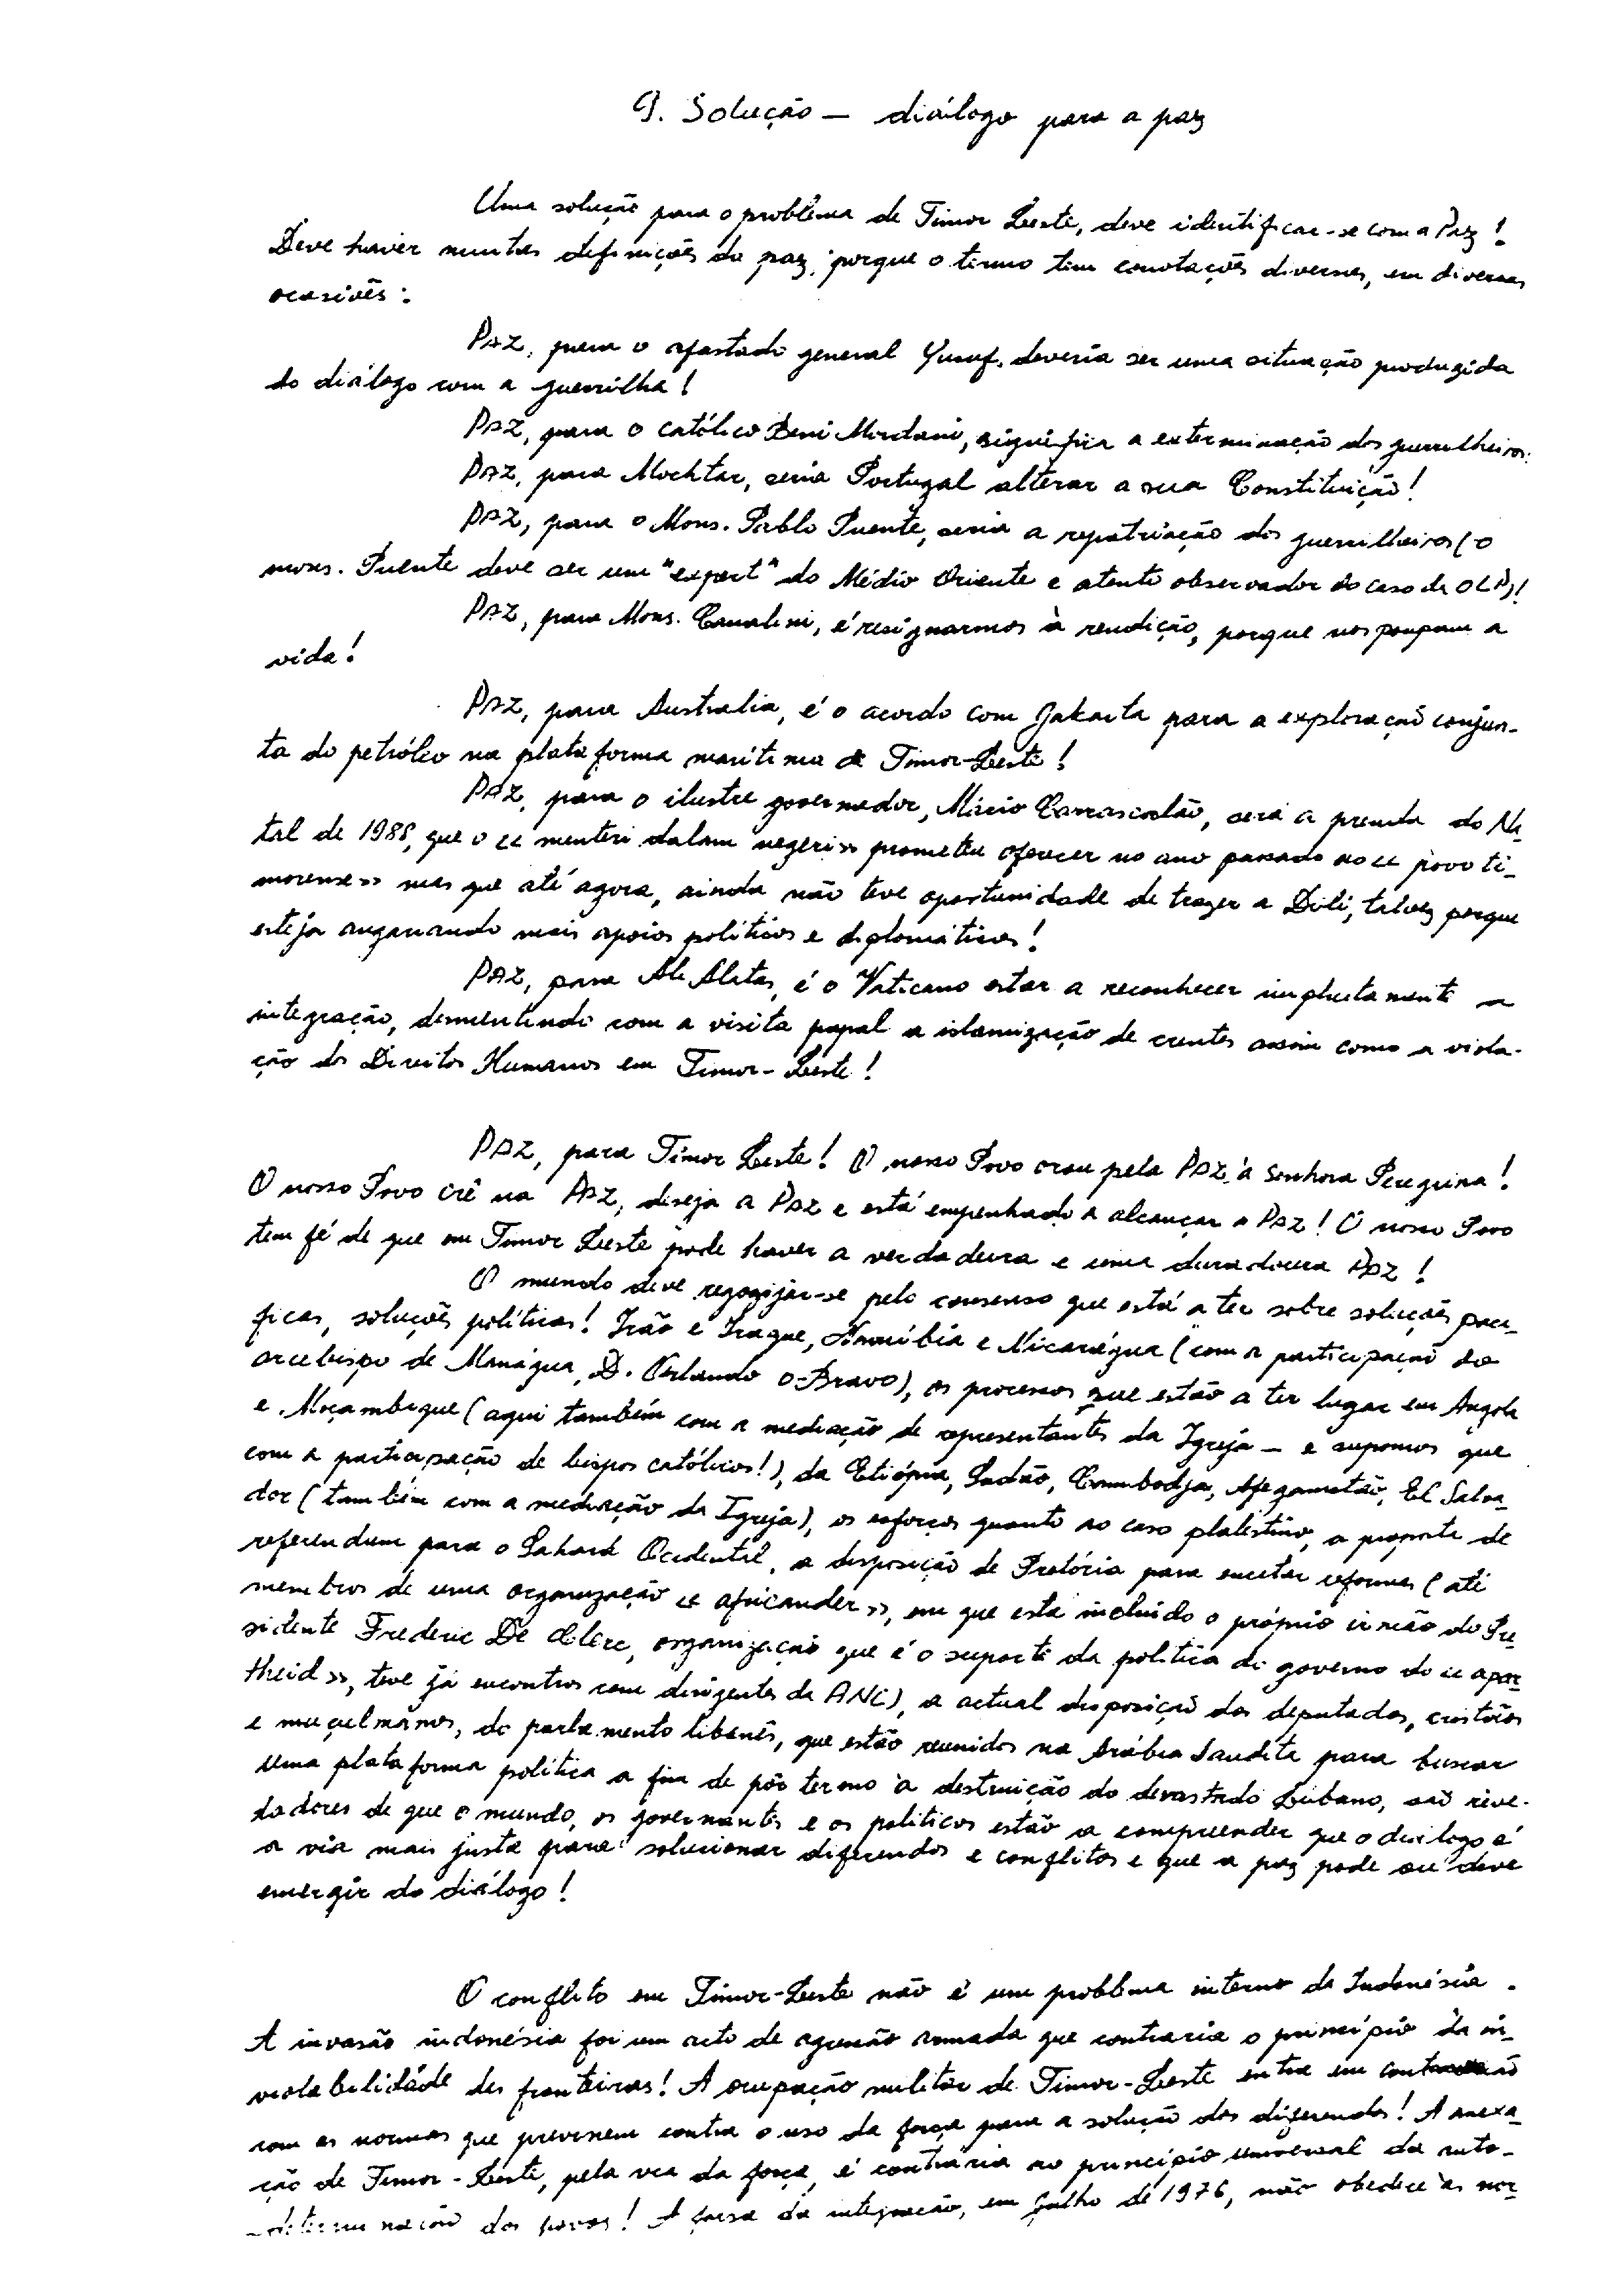 9. Solução — diálogo para a paz
Uma solução para o problema de Timor Leste, deve identificar-se com a Paz!
Deve haver muitas definições da paz, porque o termo tem conotações diversas, em diversas
ocasiões:
PAZ, para o afastado general Yusuf, deveria ser uma situação produzida
do diálogo com a guerrilha!
PAZ, para o católico Beni Murdani, significa a exterminação dos guerrilheiros!
PAZ, para Mochtar, seria Portugal alterar a sua Constituição!
PAZ, para o Mons. Pablo Puente, seria a repatriação dos guerrilheiros (o
mons. Puente deve ser um "expert" do Médio Oriente e atento observador do caso da OLP)!
PAZ, para Mons. Canalini, é resignarmos à rendição, porque nos poupam a
vida!
PAZ, para Australia, é o acordo com Jakarta para a exploração conjun-
ta do petróleo na plataforma marítima de Timor-Leste!
PAZ, para o ilustre governador, Mário Carrascalão, será a prenda do Na-
tal de 1988, que o «menteri dalam negeri» prometeu oferecer no ano passado ao «povo ti-
morense» mas que até agora, ainda não teve oportunidade de trazer a Dili, talvez porque
esteja angariando mais apoios políticos e diplomáticos!
PAZ, para Ali Alatas, é o Vaticano estar a reconhecer implicitamente a
integração, desmentindo com a visita papal a islamização de crentes assim como a viola-
ção dos Direitos Humanos em Timor-Leste!
PAZ, para Timor Leste! O nosso Povo orou pela PAZ à Senhora Peregrina!
O nosso Povo crê na PAZ, deseja a PAZ e está empenhado a alcançar a PAZ! O nosso Povo
tem fé de que em Timor Leste pode haver a verdadeira e uma duradoura PAZ!
O mundo deve regozijar-se pelo consenso que está a ter sobre soluções pací-
ficas, soluções políticas! Irão e Iraque, Namíbia e Nicarágua (com a participação do
arcebispo de Manágua, D. Orlando o-Bravo), os processos que estão a ter lugar em Angola
e Moçambique (aqui também com a mediação de representantes da Igreja — e supomos que
com a participação de bispos católicos!), da Etiópia, Sudão, Cambodja, Afeganistão, El Salva-
dor (também com a mediação da Igreja), os esforços quanto ao caso plalestino, a proposta de
referendum para o Sahará Ocidental, a disposição de Pretória para encetar reformas (até
membros de uma organização «africander», em que está incluído o próprio irmão do Pre-
sidente Frederic De Clerc, organização que é o suporte da política de governo do «apar-
theid», teve já encontros com dirigentes da ANC), a actual disposição dos deputados, cristãos
e muçulmanos, do parlamento libanês, que estão reunidos na Arábia Saudita para buscar
uma plataforma política a fim de pôr termo à destruição do devastado Líbano, são reve-
ladores de que o mundo, os governantes e os políticos estão a compreender que o diálogo é
a via mais justa para solucionar diferendos e conflitos e que a paz pode ou deve
emergir do diálogo!
O conflito em Timor-Leste não é um problema interno da Indonésia.
A invasão indonésia foi um acto de agressão armada que contraria o princípio da in-
violabilidade das fronteiras! A ocupação militar de Timor-Leste entra em
com as normas que previnem contra o uso da força para a solução dos diferendos! A anexa-
ção de Timor-Leste, pela via da força, é contrária ao princípio universal da auto-
determinação dos povos! A farsa da integração, em Julho de 1976, não obedece às nor-